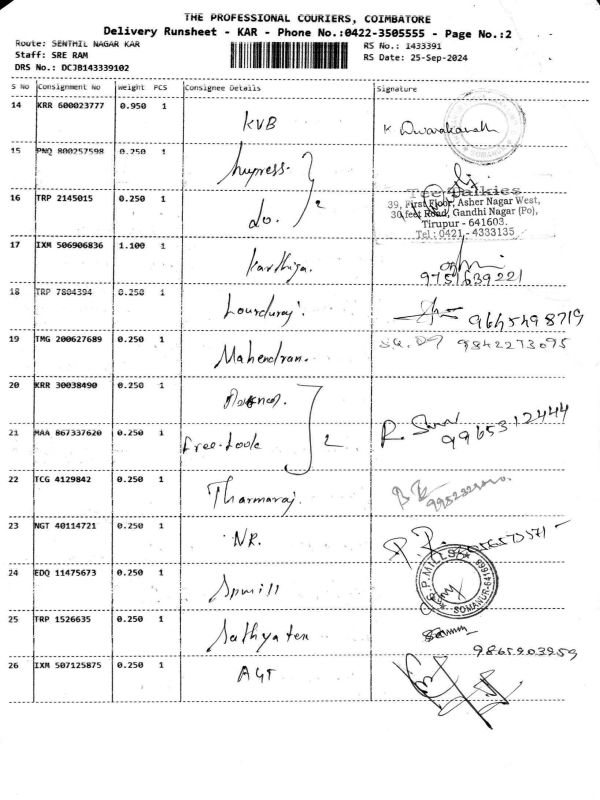 THE PROFESSIONAL COURIERS, COIMBATORE
Delivery Runsheet - KAR - Phone No.:0422-3505555 - Page No.:2
Route: SENTHIL NAGAR KAR
Staff: SRE RAM
DRS No.: DCJB143339102
RS No.: 1433391
RS Date: 25-Sep-2024
S No Consignment No Weight PCS Consignee Details Signature
14 KRR 600023777 0.950 1 KVB K Dwarakanath
15 PNQ 800257598 0.250 1
Tee Talkies
39, First Floor, Asher Nagar West,
30 feet Road, Gandhi Nagar (Po),
Tirupur - 641603.
Tel : 0421 - 4333135
16 TRP 2145015 0.250 1 do. 2
17 IXM 506906836 1.100 1 Karthiga. 9751639221
18 TRP 7804394 0.250 1 Lourduraj. 9665498719
19 TMG 200627689 0.250 1 Mahendran. 9842273095
20 KRR 30038490 0.250 1
21 MAA 867337620 0.250 1 Free-Look 2 9965312444
22 TCG 4129842 0.250 1 Tharmaraj.
23 NGT 40114721 0.250 1 NR.
24 EDQ 11475673 0.250 1 Spmill
P. MILLS
SOMANUR-641668
25 TRP 1526635 0.250 1 Sathya tex
9865903959
26 IXM 507125875 0.250 1 AGT